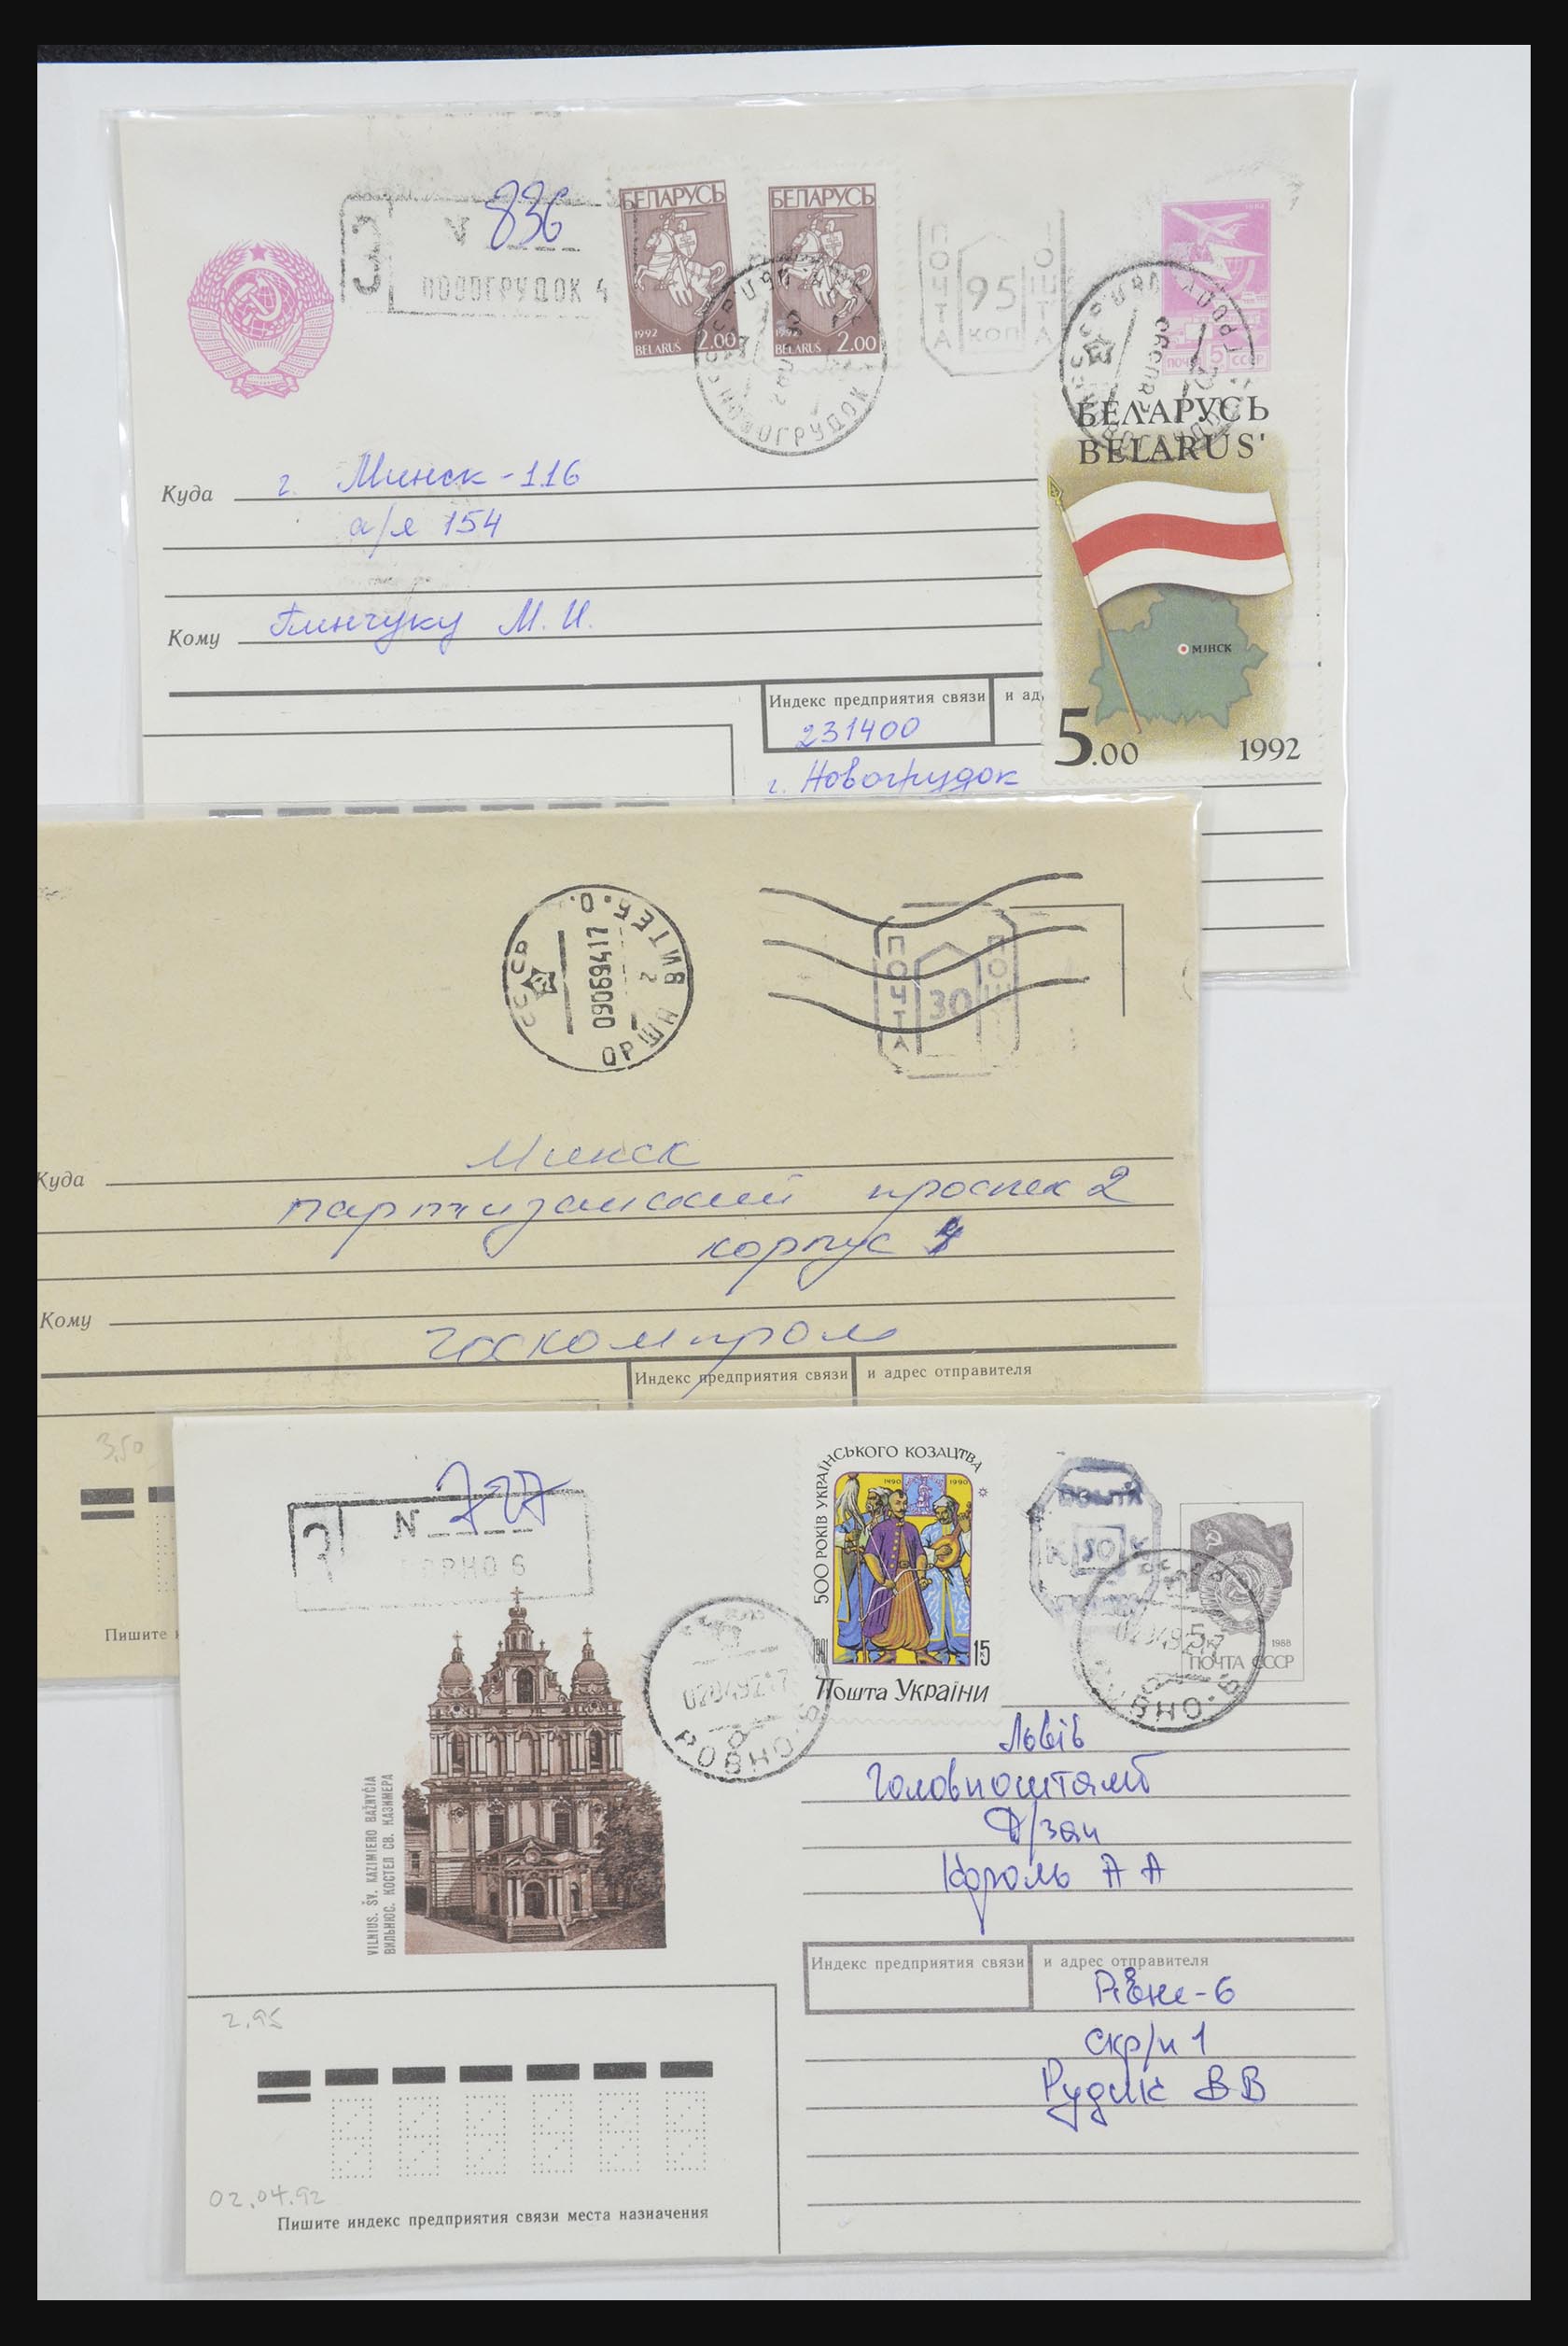 З
N 836
НОВОГРУДОК 4
БЕЛАРУСЬ
1992
BELARUS 2.00
БЕЛАРУСЬ
BELARUS 2.00
ПОЧТА
95
КОП
ПОШТА
НОВОГРУДОК
1982
ПОЧТА 5 СССР
БЕЛАРУСЬ
BELARUS'
МІНСК
5.00 1992
Куда г. Минск-116
а/я 154
Кому Глинчуку М. И.
Индекс предприятия связи и ад
231400
г. Новогрудок
СССР
090694 17
ОРША 2 ВИТЕБ. О.
ПОЧТА
30
Куда Минск
партизанский проспек 2
корпус
Кому Госкомпром
Индекс предприятия связи и адрес отправителя
3,50
Пишите
З
N 727
РОВНО 6
500 РОКІВ УКРАЇНСЬКОГО КОЗАЦТВА
1490 1990
1991 15
Пошта України
ПОШТА
К 50 К
020492
РОВНО-6
020492
РОВНО-6
5к
1988
ПОЧТА СССР
VILNIUS. ŠV. KAZIMIERO BAŽNYČIA
ВИЛЬНЮС. КОСТЕЛ СВ. КАЗИМЕРА
Львів
Головпоштамт
Д/зап
Король А А
Индекс предприятия связи и адрес отправителя
Рівне-6
Скр/п 1
Рудик ВВ
2,95
02.04.92
Пишите индекс предприятия связи места назначения